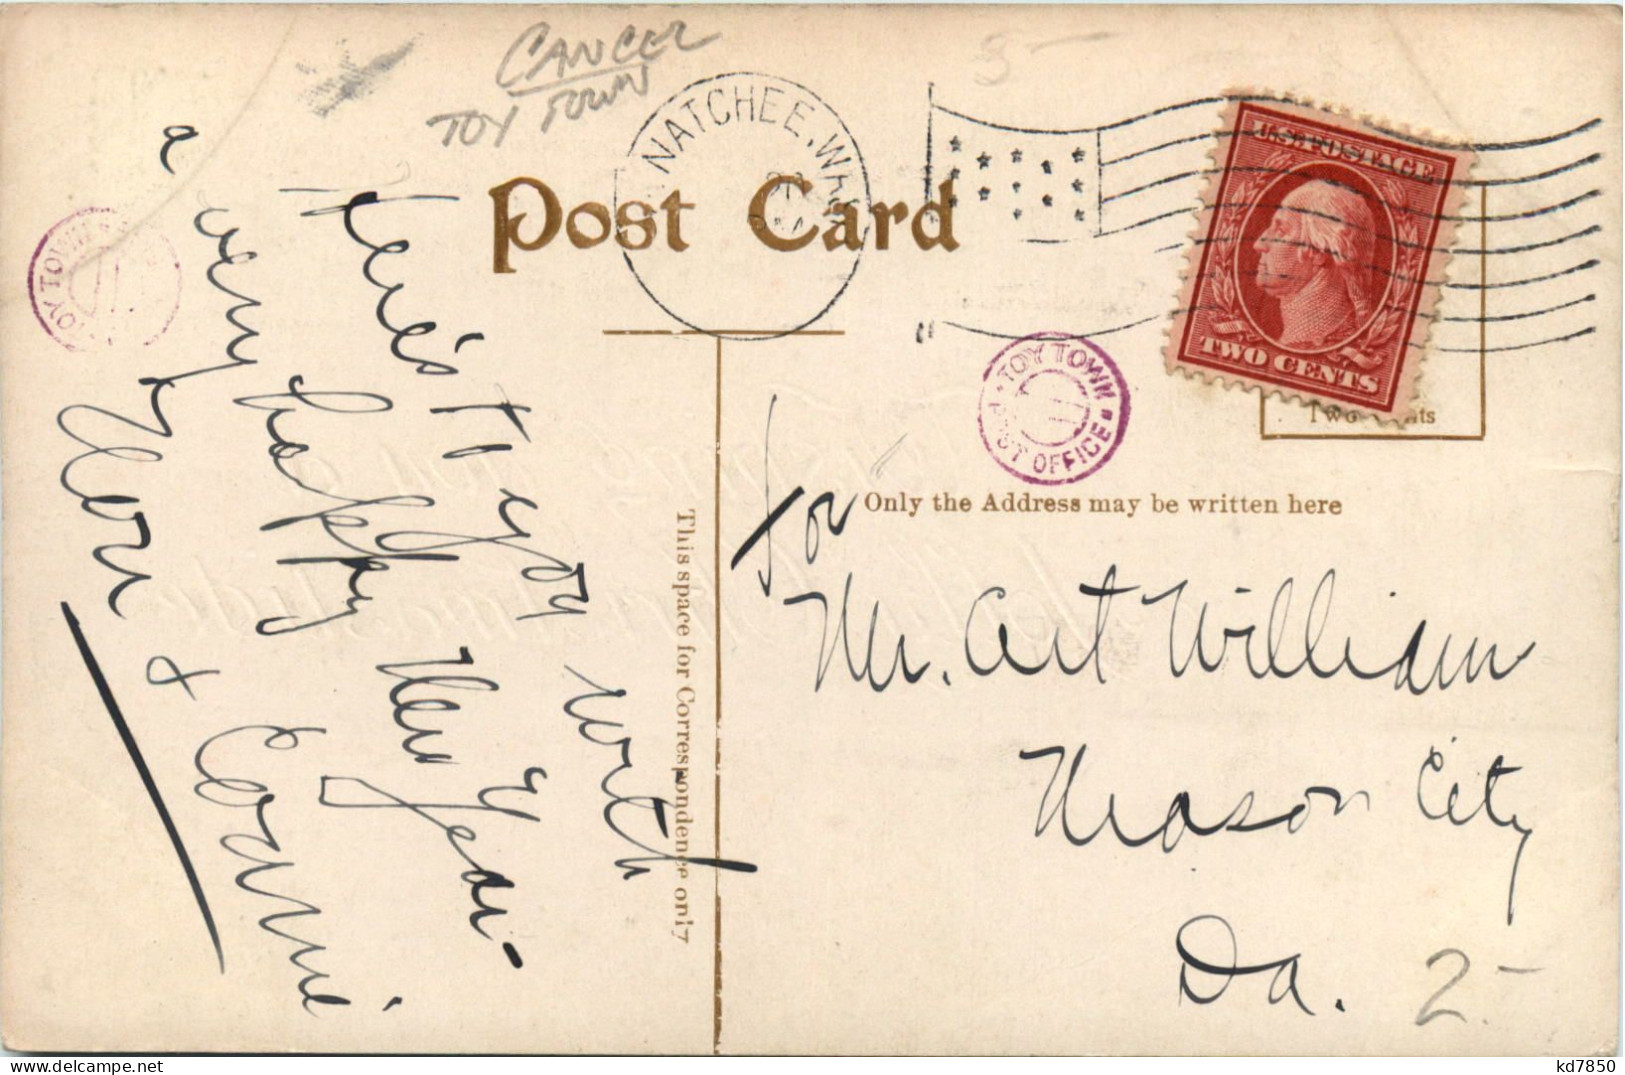 CANCEL
TOY TOWN
3-
NATCHEE, WASH
Post Card
U.S. POSTAGE
TWO CENTS
TOY TOWN
TOY TOWN
POST OFFICE
Only the Address may be written here
This space for Correspondence only
Here's to you with
a very happy New Year.
& Corinne
for
Mr. Art William
Mason City
Ia.
2-
kd7850